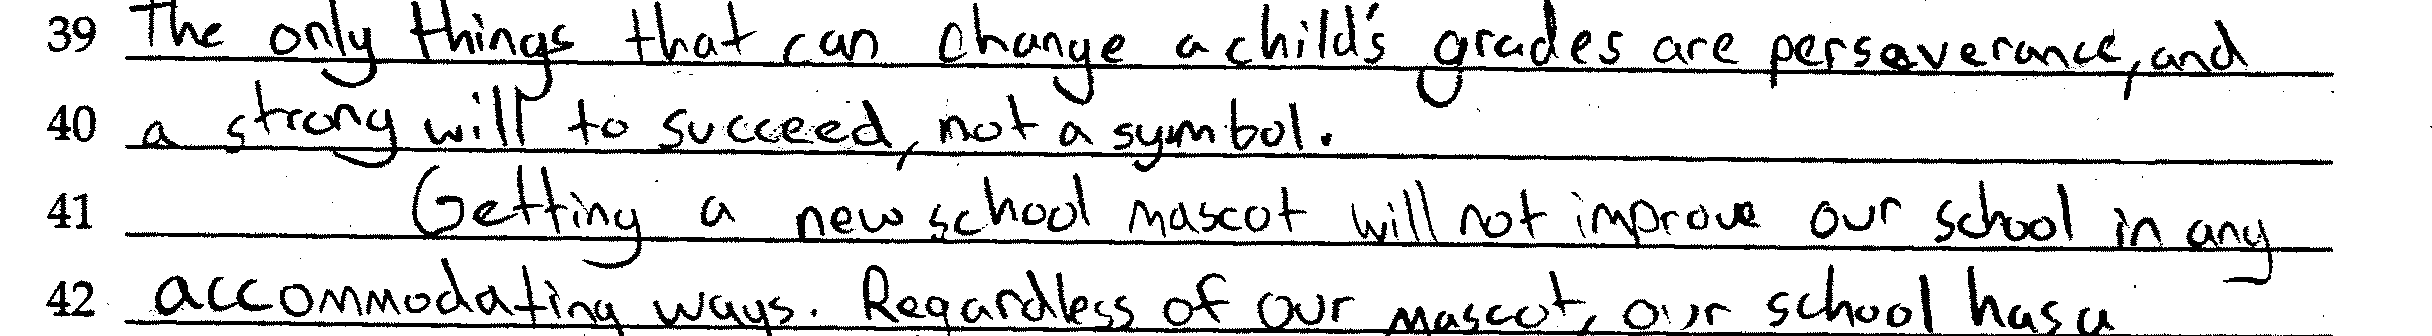 39 The only things that can change a child's grades are perseverance, and
40 a strong will to succeed, not a symbol.
41 Getting a new school mascot will not improve our school in any
42 accommodating ways. Regardless of our mascot, our school has a